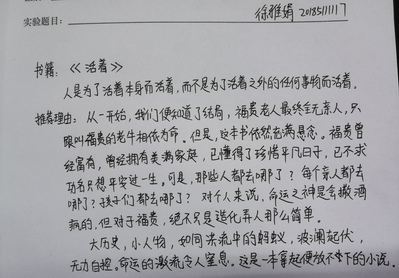 徐雅娟 2018511117
实验题目：
书籍：《活着》
人是为了活着本身而活着，而不是为了活着之外的任何事物而活着。
推荐理由：从一开始，我们便知道了结局，福贵老人最终至无亲人，只
跟叫福贵的老牛相依为命。但是，这本书依然充满悬念。福贵曾
经富有，曾经拥有美满家庭，已懂得了珍惜平凡日子，已不求
功名只想平安过一生。可是，那些人都去哪了？每个亲人都去
哪了？孩子们都去哪了？对个人来说，命运之神是会撒酒
疯的，但对于福贵，绝不只是造化弄人那么简单。
大历史，小人物，如同洪流中的蚂蚁，波澜起伏，
无力自控，命运的激流令人窒息。这是一本拿起便放不下的小说。